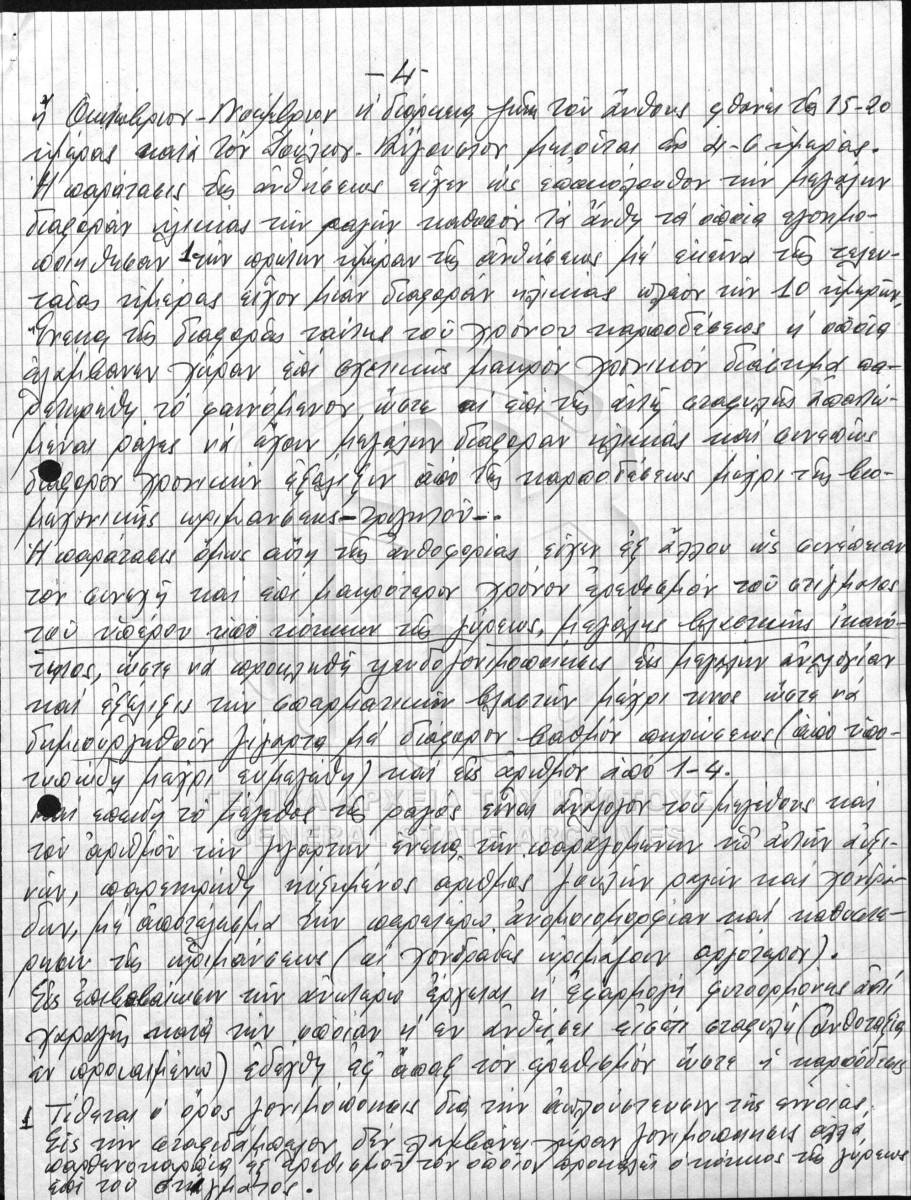 -4-
ἤ Ὀκτώβριον-Νοέμβριον ἡ διάρκεια ζωῆς τοῦ ἄνθους φθάνει τάς 15-20
ἡμέρας κατά τόν Ἰούλιον-Αὔγουστον μειοῦται εἰς 4-6 ἡμέρας.
Ἡ παράτασις τῆς ἀνθήσεως εἶχεν ὡς ἐπακόλουθον τήν μεγάλην
διαφοράν ἡλικίας τῶν ραγῶν καθόσον τά ἄνθη τά ὁποῖα ἐγονιμο-
ποιήθησαν 1 τήν πρώτην ἡμέραν τῆς ἀνθήσεως μέ ἐκεῖνα τῆς τελευ-
ταίας ἡμέρας εἶχον μίαν διαφοράν ἡλικίας πλέον τῶν 10 ἡμερῶν.
Ἕνεκα τῆς διαφορᾶς ταύτης τοῦ χρόνου καρποδέσεως ἡ ὁποία
ἐλάμβανεν χώραν ἐπί σχετικῶς μακρόν χρονικόν διάστημα πα-
ρετηρήθη τό φαινόμενον, ὥστε αἱ ἐπί τῆς αὐτῆς σταφυλῆς
μεναι ράγες νά ἔχουν μεγάλην διαφοράν ἡλικίας καί συνεπῶς
διάφορον χρονικήν ἐξέλιξιν ἀπό τῆς καρποδέσεως μέχρι τῆς βιο-
μηχανικῆς ὡριμάνσεως-τρυγητοῦ-.
Ἡ παράτασις ὅμως αὕτη τῆς ἀνθοφορίας εἶχεν ἐξ ἄλλου ὡς συνέπειαν
τόν συνεχῆ καί ἐπί μακρότερον χρόνον ἐρεθισμόν τοῦ στίγματος
τοῦ ὑπέρου ὑπό κόκκων τῆς γύρεως, μεγάλης βλαστικῆς ἱκανό-
τητος, ὥστε νά προκληθῆ ψευδογονιμοποίησις εἰς μεγάλην ἀναλογίαν
καί ἐξέλιξις τῶν σπερματικῶν βλαστῶν μέχρι τινος ὥστε νά
δημιουργηθοῦν γίγαρτα μέ διάφορον βαθμόν πηρώσεως (ἀπό ὑπο-
τυπώδη μέχρι εὐμεγέθη) καί εἰς ἀριθμόν ἀπό 1-4.
Καί ἐπειδή τό μέγεθος τῆς ραγός εἶναι ἀνάλογον τοῦ μεγέθους καί
τοῦ ἀριθμοῦ τῶν γιγάρτων ἕνεκα τῶν παραγομένων ὑπ' αὐτῶν αὐξι-
νῶν, παρετηρήθη ηὐξημένος ἀριθμός ραγῶν καί χονδρά-
δων, μέ ἀποτέλεσμα τήν περαιτέρω ἀνομοιομορφίαν καί καθυστέ-
ρησιν τῆς ὡριμάνσεως (αἱ χονδράδες ὡριμάζουν ἀργότερον).
Εἰς ἐπιβεβαίωσιν τῶν ἀνωτέρω ἔρχεται ἡ ἐφαρμογή φυτοορμόνης ἀντί
χαραγῆς κατά τήν ὁποίαν ἡ ἐν ἀνθήσει εἰσέτι σταφυλή (ἀνθοταξία
ἐν προκειμένω) ἐδέχθη ἐφ' ἅπαξ τόν ἐρεθισμόν ὥστε ἡ καρπόδεσις
1 Τίθεται ὁ ὅρος γονιμοποίησις διά τήν ἁπλούστευσιν τῆς ἐννοίας.
Εἰς τήν σταφιδάμπελον δέν λαμβάνει χώραν γονιμοποίησις ἀλλά
παρθενοκαρπία ἐξ ἐρεθισμοῦ τόν ὁποῖον προκαλεῖ ὁ κόκκος τῆς γύρεως
ἐπί τοῦ στίγματος.
ΓΕΝΙΚΑ ΑΡΧΕΙΑ ΤΟΥ ΚΡΑΤΟΥΣ
GENERAL STATE ARCHIVES